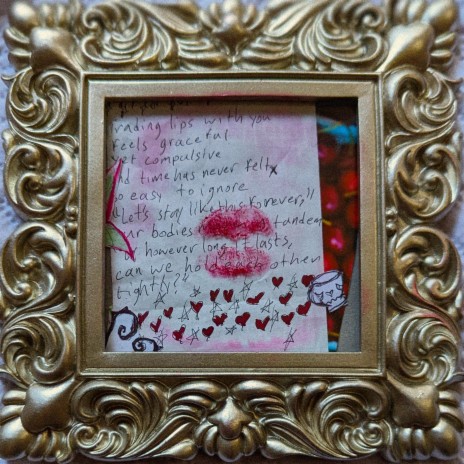 rading lips with you
feels graceful
yet compulsive
nd time has never felt
so easy to ignore
"Let's stay like this forever,"
ur bodies tandem
however long it lasts,
can we hold each other
tightly?"